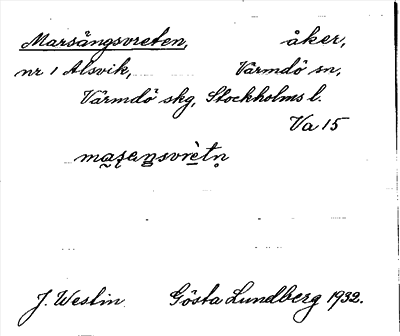 Marsängsvreten, åker,
nr 1 Alsvik, Värmdö sn,
Värmdö skg, Stockholms l.
Va 15
J. Westin Gösta Lundberg 1932.